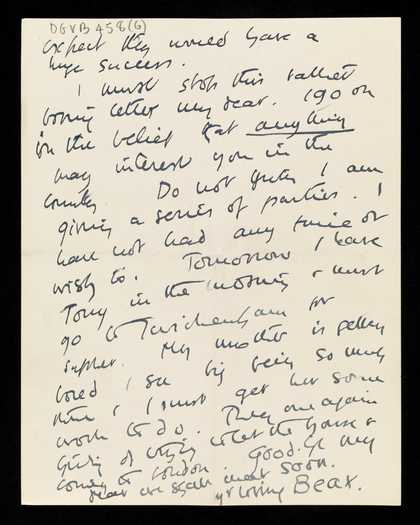 DGVB 458(6)
expect they would have a
huge success.
I must stop this rather
boring letter my dear. I go on
in the belief that anything
may interest you in the
country. Do not I am
giving a series of parties. I
have not had any twice or
wish to. Tomorrow I have
Tony in the morning & must
go to Twickenham for
supper. My mother is getting
bored I see being so much
& I must get her some
work to do. They are again
of to let the house &
coming to London. Good-bye my
dear we shall meet soon.
yr loving Beax.